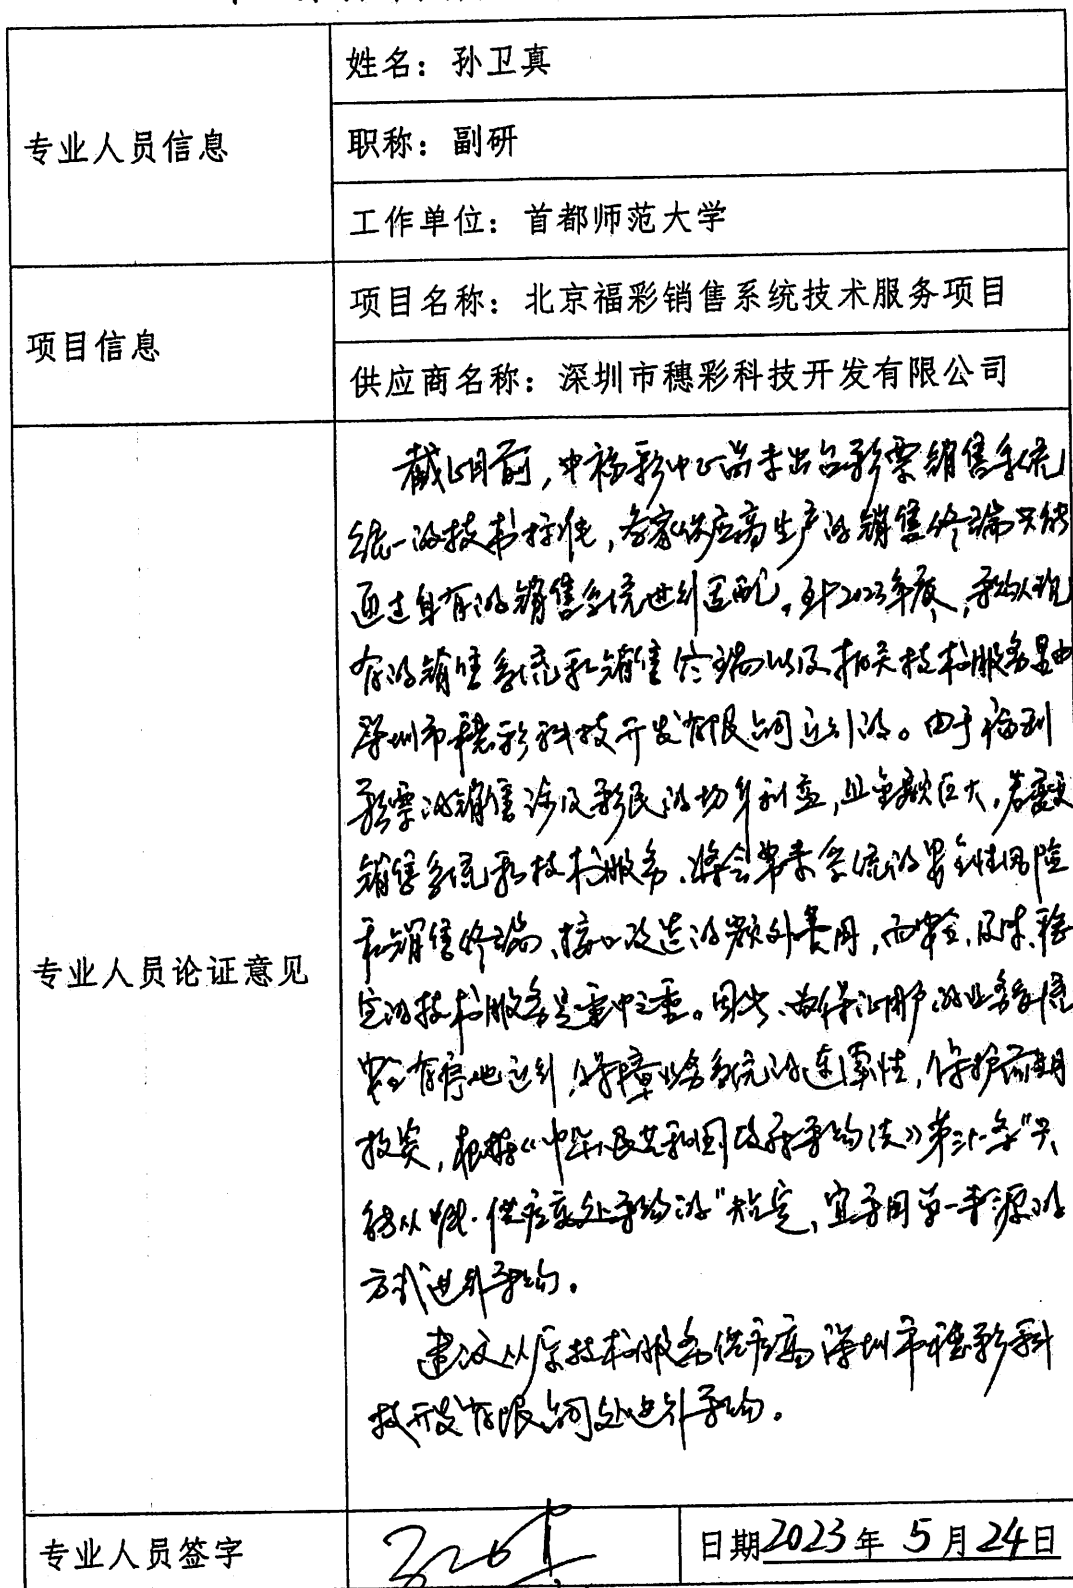 专业人员信息
姓名：孙卫真
职称：副研
工作单位：首都师范大学
项目信息
项目名称：北京福彩销售系统技术服务项目
供应商名称：深圳市穗彩科技开发有限公司
专业人员论证意见
截止目前，中福彩中心尚未出台彩票销售系统
统一的技术标准，各家供应商生产的销售终端只能
通过自有的销售系统进行适配。2023年度，采购人现
有的销售系统和销售终端以及相关技术服务是由
深圳市穗彩科技开发有限公司运行的。由于福利
彩票的销售涉及彩民的切身利益，且金额巨大，若变更
销售系统和技术服务、将会带来系统的安全性风险
和销售终端、接口改造的额外费用，而安全、及时、稳
定的技术服务是重中之重。因此、为保证用户的业务系统
安全有序地运行，保障业务系统的连续性，保护前期
投资，根据《中华人民共和国政府采购法》第三十一条"只
能从唯一供应商处采购的"规定，宜采用单一来源的
方式进行采购。
建议从原技术服务供应商深圳市穗彩科
技开发有限公司处进行采购。
专业人员签字
日期2023年 5月24日